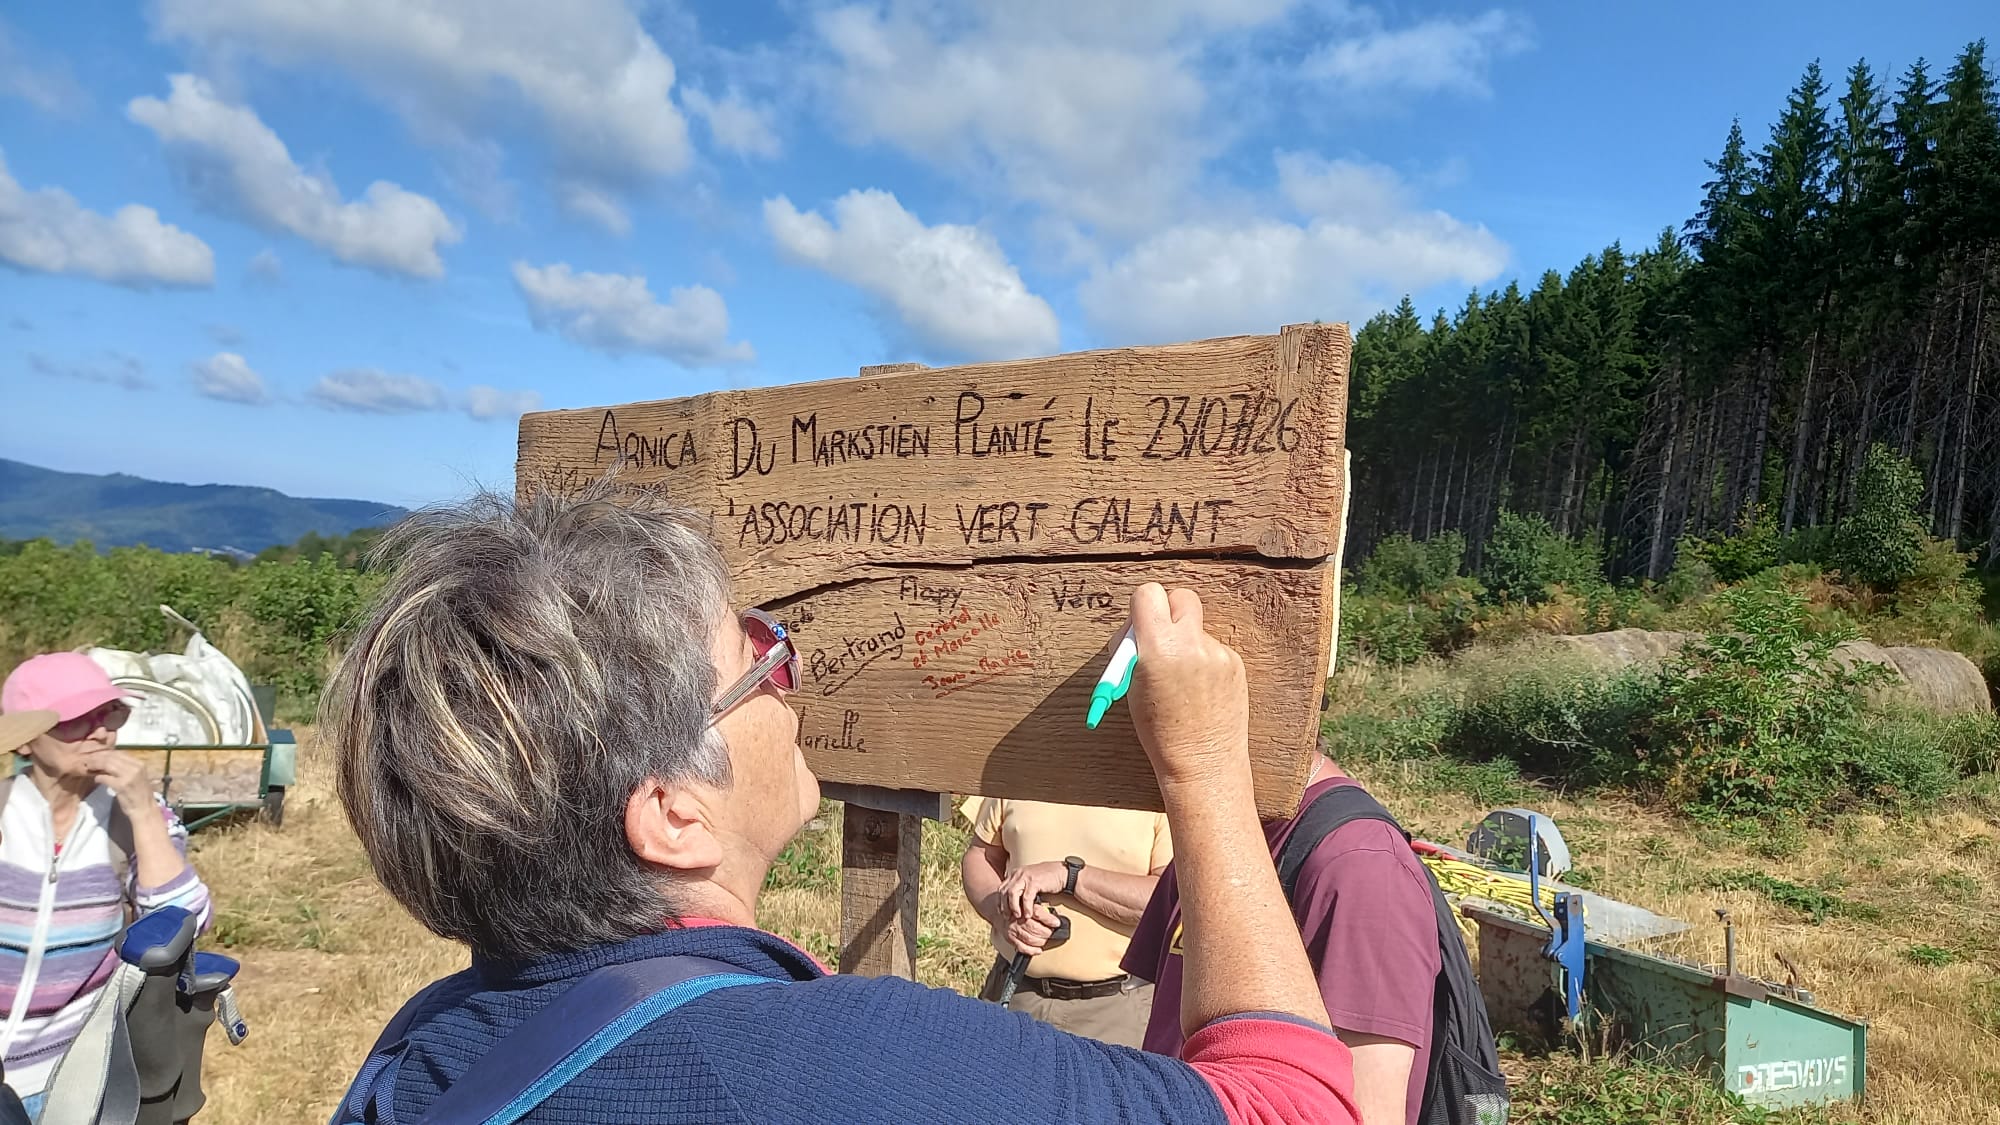 ARNICA DU MARKSTIEN PLANTÉ LE 23/07/26
L'ASSOCIATION VERT GALANT
Flapy
Véro
Bertrand
Gérard
et Marcelle
Jean-Marie
DESVOYS